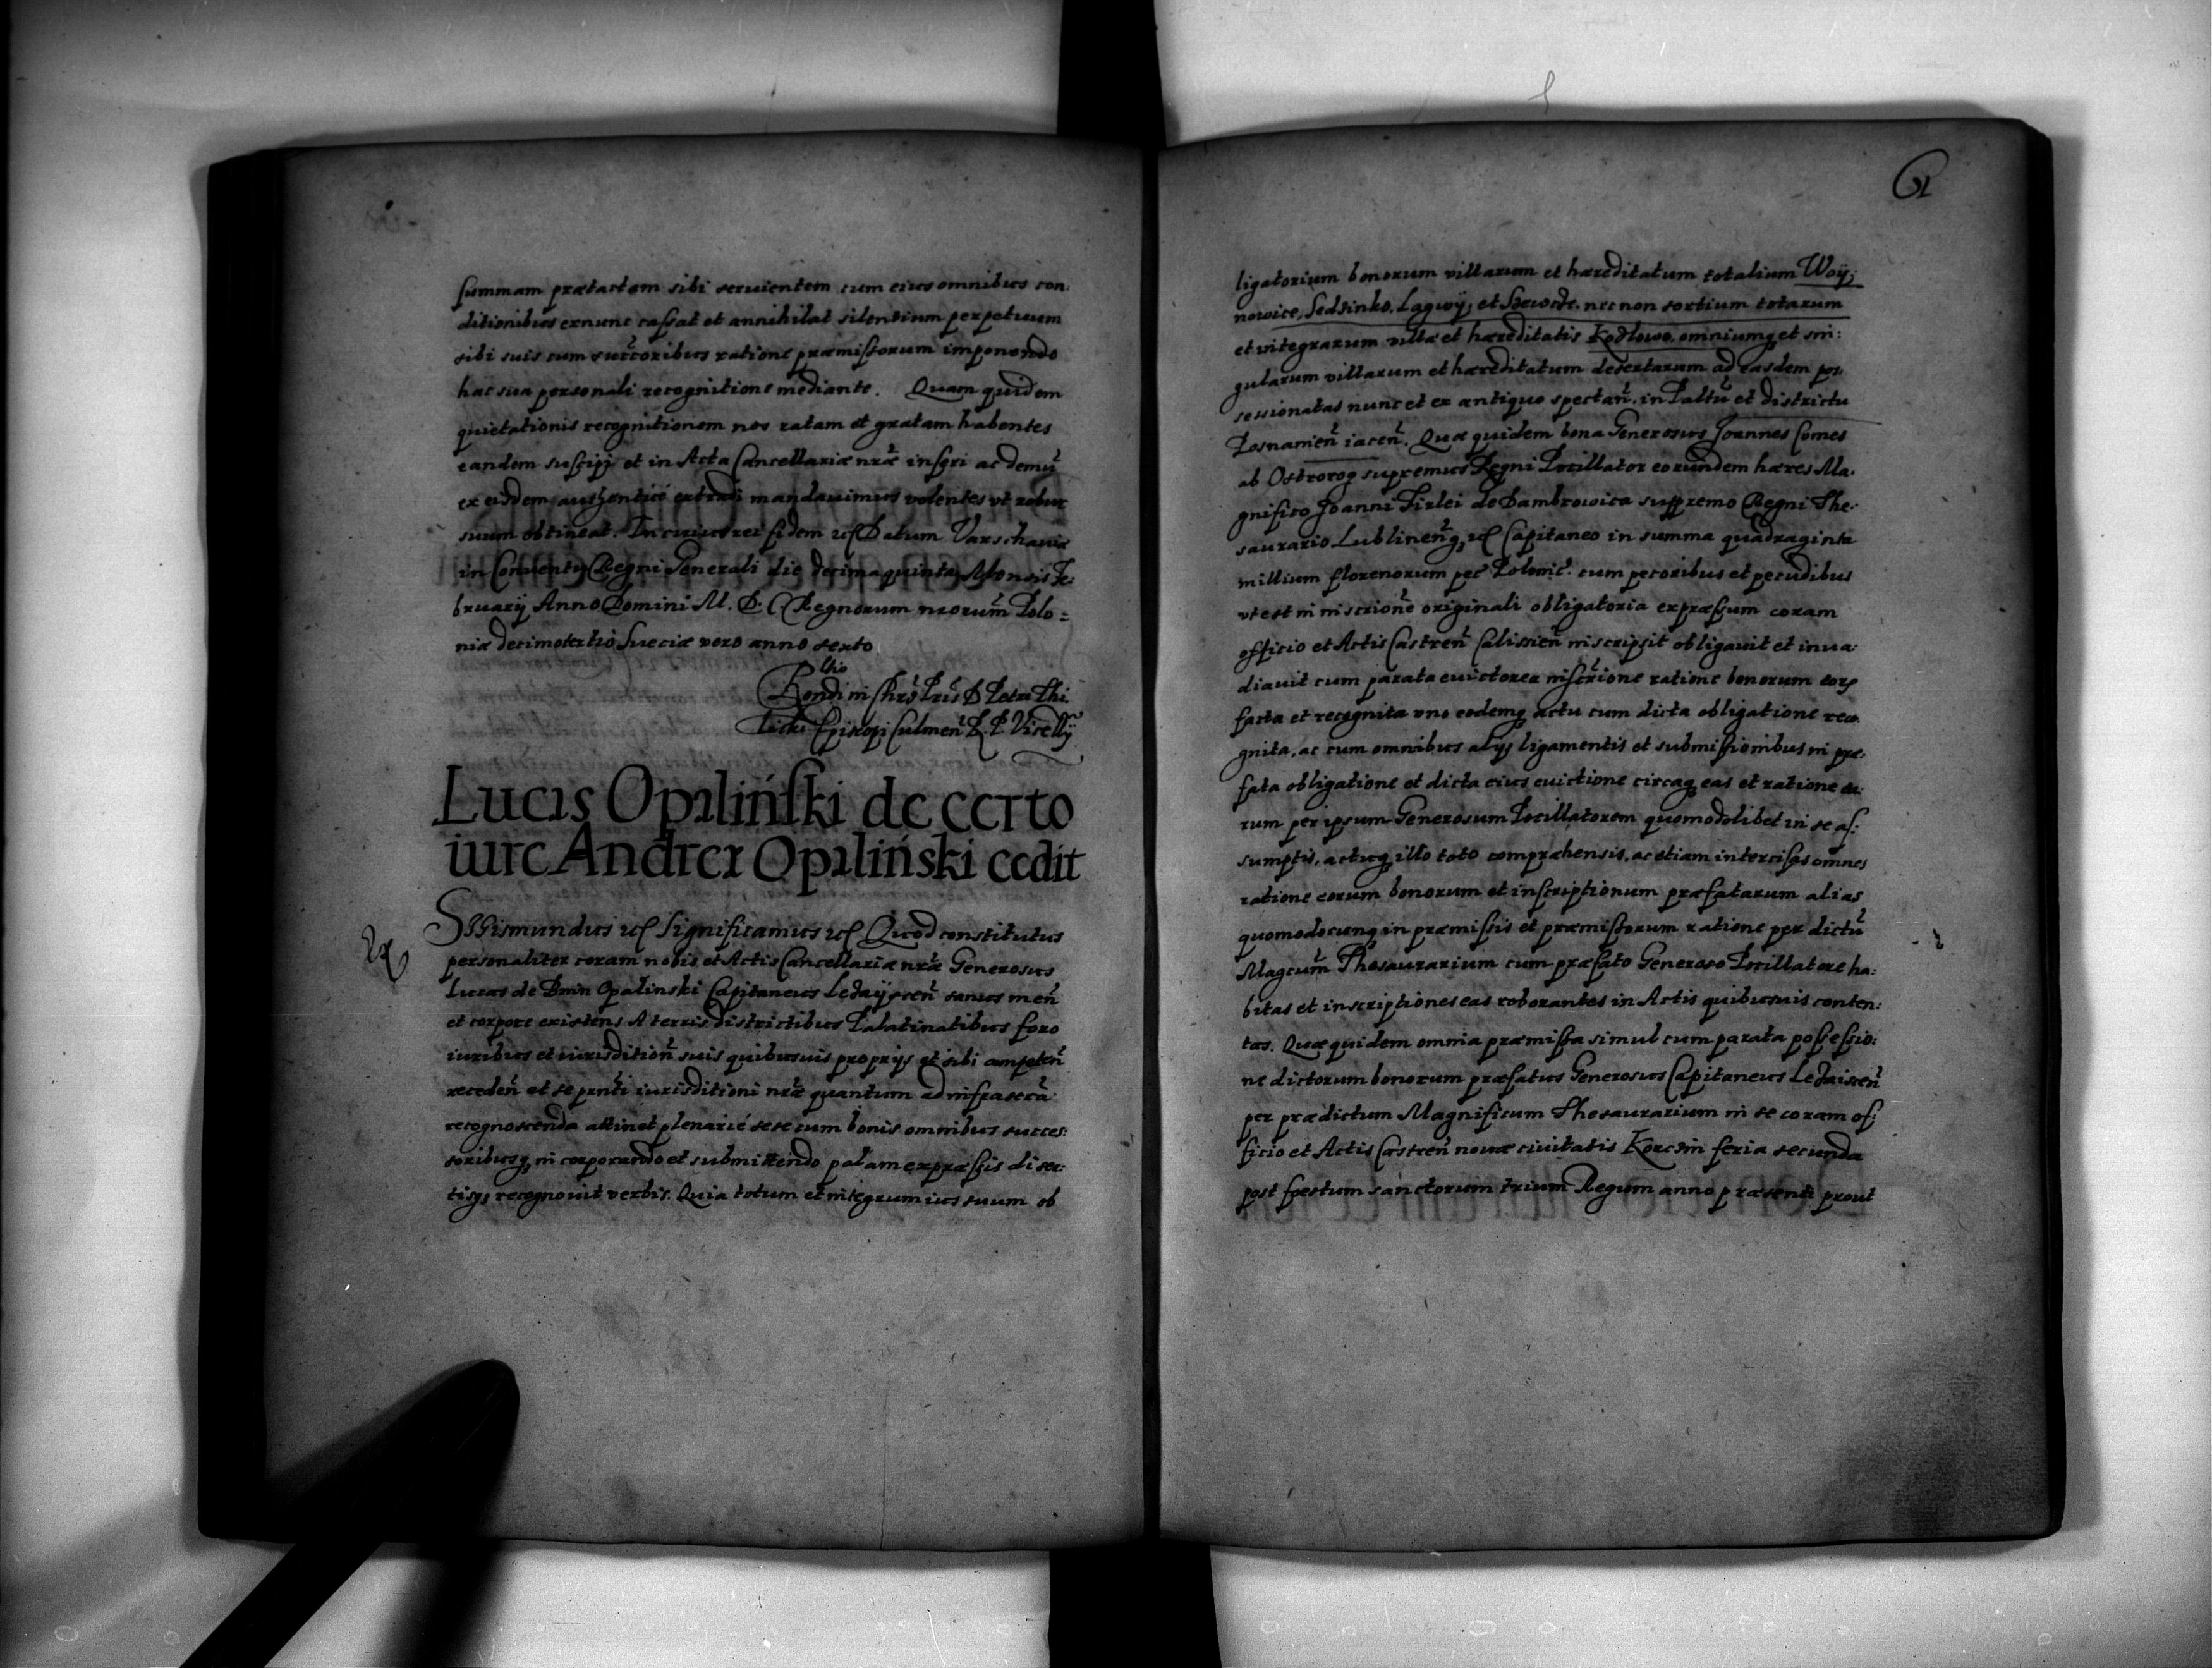 summam prætactam sibi seruientem cum eius omnibus con:
ditionibus exnunc cassat et annihilat silentium perpetuum
sibi suis cum succ̃coribus ratione præmissorum imponendo
hac sua personali recognitione mediante. Quam quidem
quietationis recognitionem nos ratam et gratam habentes
eandem suscipi et in Acta Cancellariæ nr̃æ inseri ac demũ
ex eisdem authenticè extradi mandauimus volentes vt robur
suum obtineat. In cuius rei fidem etc Datum Varschauiæ
in Conuentu Regni Generali die decima quinta Mensis Fe:
bruarij Anno Domini M. D. C Regnorum nrorum̃ Polo=
niæ decimotertio Sueciæ vero anno sexto
R̃ndi in Chrõ Pris D Petri Thi.
licki Episcopi Culmeñ R. P. Vicellij
Lucas Opaliński de certo
iure Andreæ Opaliński cedit
SIgismundus etc Significamus etc Quod constitutus
personaliter coram nobis et Actis Cancellariæ nr̃æ Generosus
Lucas de Bnin Opalinski Capitaneus Ledaÿsceñ sanus meñ
et corpore existens A terris districtibus Palatinatibus foro
iuribus et iurisditioñ suis quibusuis proprijs et sibi competeñ
recedeñ et se pr̃nti iurisditioni nr̃æ quantum ad infrascrã
recognoscenda attinet plenariè sese cum bonis omnibus succes:
soribusq̢ incorporando et submittendo palam expræssis diser:
tisq̢ recognouit verbis. Quia totum et integrum ius suum ob
61
ligatorium bonorum villarum et hæreditatum totalium Woÿ;
nowice, Sedzinko, Lagwÿ, et necnon sortium totarum
et integrarum villæ et hæreditatis Kozlowo, omniumq̢ et sin:
gularum villarum et hæreditatum desertarum ad easdem pos.
sessionatas nunc et ex antiquo spectañ. in Paltũ et districtu
Posnamieñ iaceñ. Quæ quidem bona Generosus Joannes Comes
ab Ostrorog supremus Regni Pocillator eorundem hæres Ma.
gnifico Joanni Firlei de Dambrowica suppremo Regni The.
saurario Lublineñq̢ etc Capitaneo in summa quadraginta
millium florenorum pec̃ Polonic̃ cum pecoribus et pecudibus
vt est in inscrione originali obligatoria expræssum coram
officio et Actis Castreñ Calissieñ inscripsit obligauit et inua:
diauit cum parata euictorea inscrione ratione bonorum eorꝫ
facta et recognita vno eodemq̢ actu cum dicta obligatione reco.
gnita, ac cum omnibus alijs ligamentis et submissionibus in præ:
fata obligatione et dicta eius euictione circaq̢ eas et ratione ea:
rum per ipsum Generosum Pocillatorem quomodolibet in se as:
sumptis, actuq̢ illo toto compræhensis, ac etiam intercisas omnes
ratione eorum bonorum et inscriptionum præfatarum alias
quomodocunq̢ in præmissis et præmissorum ratione per dictũ
Magcum̃ Thesaurarium cum præfato Generoso Pocillatore ha:
bitas et inscriptiones eas roborantes in Actis quibusuis conten:
tas. Quæ quidem omnia præmissa simul cum parata possessio:
ne dictorum bonorum præfatus Generosus Capitaneus Ledaisceñ
per prædictum Magnificum Thesaurarium in se coram of,
ficio et Actis Castreñ nouæ ciuitatis Korczin feria secunda
post festum sanctorum trium Regum anno præsenti prout